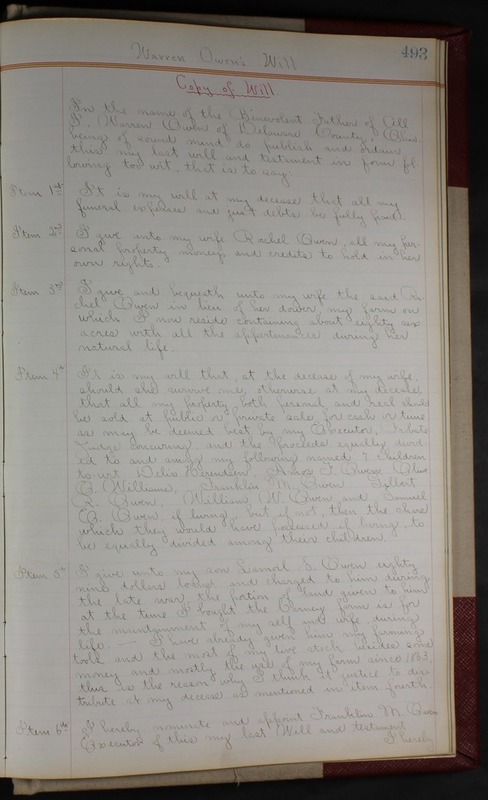 Warren Owen's Will
493
Copy of Will
In the name of the Benevolent Father of All
I, Warren Owen of Delaware County, Ohio
being of sound mind do publish and ordain
this my last will and testament in form fol
lowing too wit, that is to say:
Item 1st It is my will at my decease that all my
funeral expenses and just debts be fully paid.
Item 2nd I give unto my wife Rachel Owen, all my per-
sonal property money and credits to hold in her
own rights.
Item 3rd I give and bequeath unto my wife the said Ra
chel Owen in lieu of her dower my farm on
which I now reside containing about eighty six
acres with all the appertenances during her
natural life.
Item 4th It is my will that, at the decease of my wife,
should she survive me, otherwise at my decease
that all my property both personal and real should
be sold at public or private sale for cash or time
as may be deemed best by my Executor, Probate
Judge concurring, and the proceeds equally divid
ed to and among my following named 7 children
to wit Delia Amos F. Owen Olive
O. Williams, Franklin M. Owen
R. Owen, William W. Owen and Samuel
B. Owen, if living, but if not, then the share
which they would have possessed if living to
be equally divided among their children.
Item 5th I give unto my son S. Owen eighty
nine dollars and charged to him during
the late war, the portion of land given to him
at the time I bought the farm is for
the maintainment of my self and wife during
life. I have already given him my farming
tools and the most of my live stock besides some
money and mostly the use of my farm since 1863,
this is the reason why I think it justice to dis-
tribute at my decease as mentioned in item fourth.
Item 6th I hereby nominate and appoint Franklin M. Owen
Executor of this my last Will and testament
I hereby